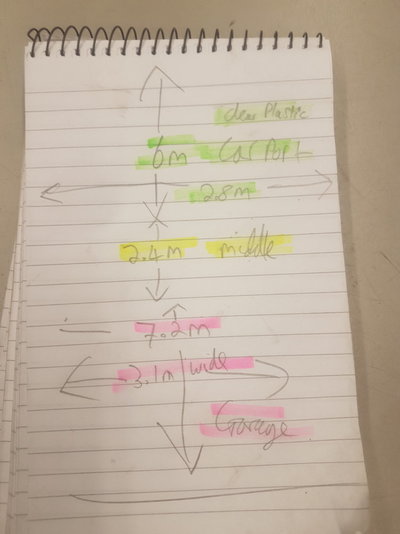 clear Plastic
6m Car Port
2.8m
2.4m middle
7.2m
3.1m wide
Garage